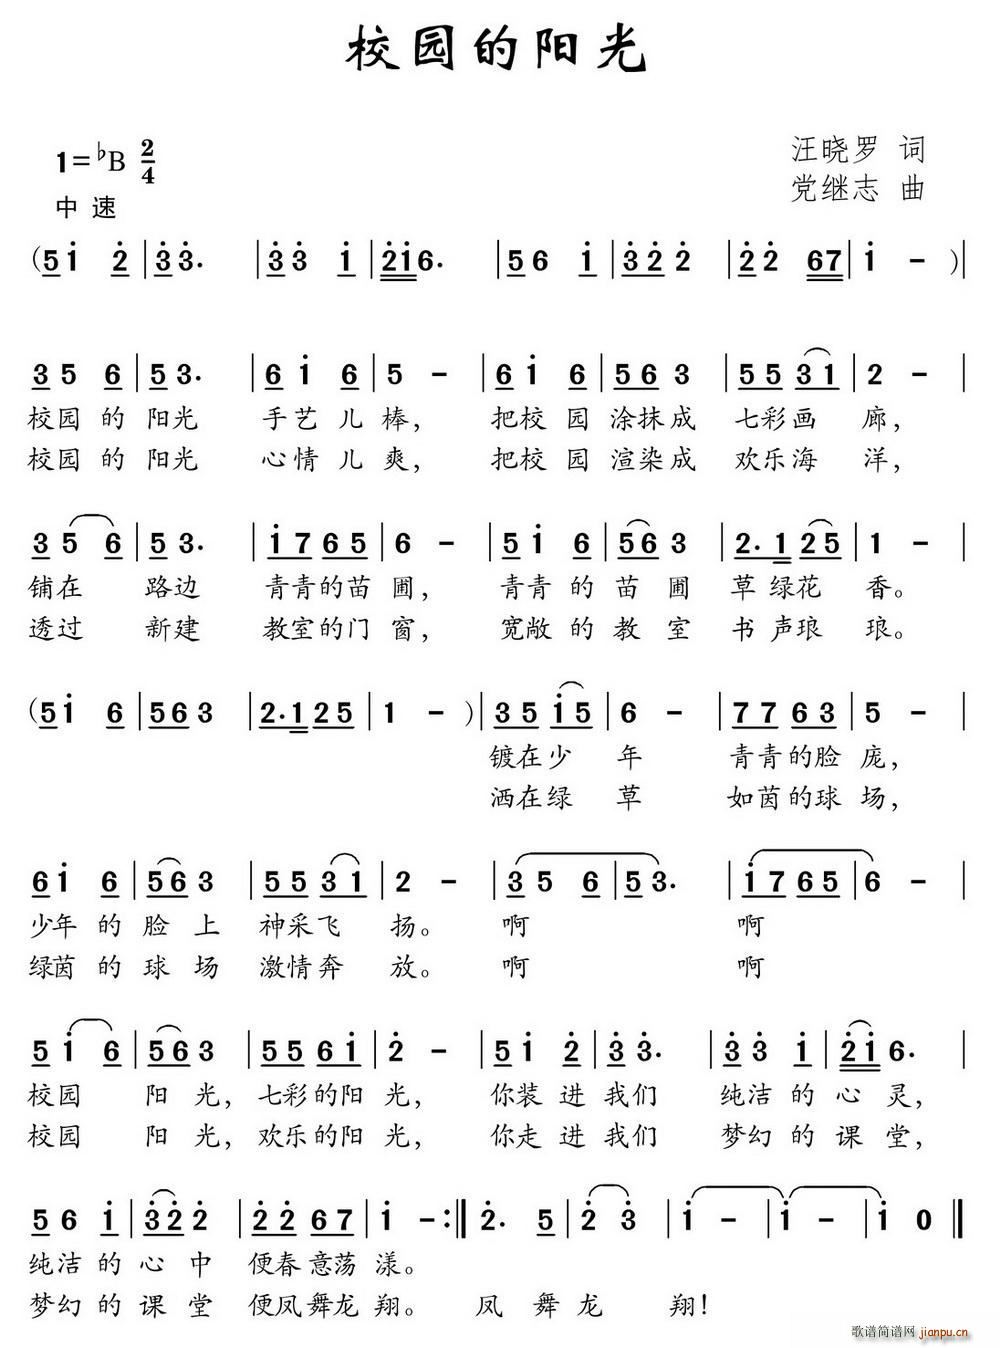 校园的阳光
1=♭B 2/4
汪晓罗 词
中速
党继志 曲
(5i 2|33. |33 i|2i6. |56 i|322 |22 67|i -)|
3 5 6|5 3. |6 i 6|5 -|6 i 6|5 6 3|5 5 3 1|2 -|
校园的阳光 手艺儿棒, 把校园涂抹成七彩画廊,
校园的阳光 心情儿爽, 把校园渲染成欢乐海洋,
3 5 6|5 3. |i 7 6 5|6 -|5 i 6|5 6 3|2. 1 2 5|1 -|
铺在路边 青青的苗圃, 青青的苗圃草绿花香。
透过新建 教室的门窗, 宽敞的教室书声琅琅。
(5 i 6|5 6 3|2. 1 2 5|1 -)|3 5 i 5|6 -|7 7 6 3|5 -|
镀在少年 青青的脸庞,
洒在绿草 如茵的球场,
6 i 6|5 6 3|5 5 3 1|2 -|3 5 6|5 3. |i 7 6 5|6 -|
少年的脸上神采飞扬。 啊 啊
绿茵的球场激情奔放。 啊 啊
5 i 6|5 6 3|5 5 6 i|2 -|5 i 2|3 3. |3 3 i|2 i 6. |
校园阳光,七彩的阳光, 你装进我们 纯洁的心灵,
校园阳光,欢乐的阳光, 你走进我们 梦幻的课堂,
5 6 i|3 2 2|2 2 6 7|i -:‖2. 5|2 3|i -|i -|i 0‖
纯洁的心中便春意荡漾。
梦幻的课堂便凤舞龙翔。 凤舞龙翔!
歌谱简谱网 jianpu.cn